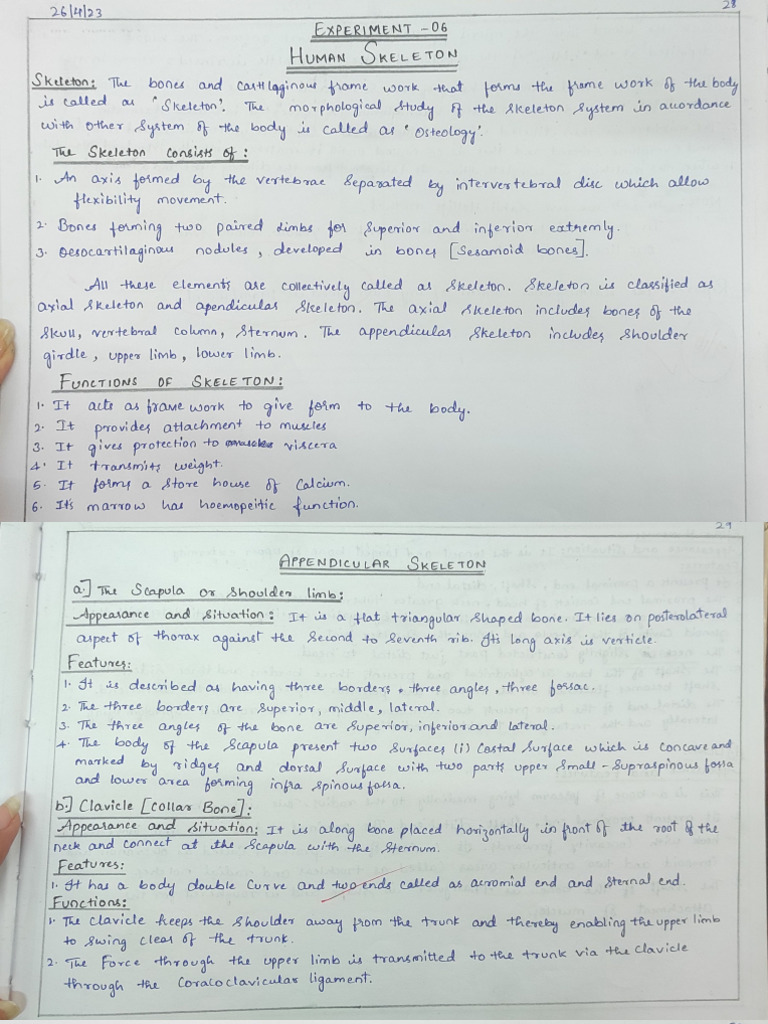 26/4/23
28
EXPERIMENT - 06
HUMAN SKELETON
Skeleton: The bones and cartilaginous frame work that forms the frame work of the body
is called as 'Skeleton'. The morphological study of the skeleton system in accordance
with other system of the body is called as 'Osteology'.
The Skeleton consists of :
1. An axis formed by the vertebrae separated by intervertebral disc which allow
flexibility movement.
2. Bones forming two paired limbs for superior and inferior extremly.
3. Oesocartilaginous nodules, developed in bones [Sesamoid bones].
All these elements are collectively called as skeleton. Skeleton is classified as
axial skeleton and apendicular skeleton. The axial skeleton includes bones of the
skull, vertebral column, sternum. The appendicular skeleton includes shoulder
girdle, upper limb, lower limb.
FUNCTIONS OF SKELETON:
1. It acts as frame work to give form to the body.
2. It provides attachment to muscles
3. It gives protection to viscera
4. It transmits weight.
5. It forms a store house of calcium.
6. It's marrow has haemopeitic function.
29
APPENDICULAR SKELETON
a.] The Scapula or Shoulder limb:
Appearance and situation: It is a flat triangular shaped bone. It lies on posterolateral
aspect of thorax against the second to seventh rib. Its long axis is verticle.
Features:
1. It is described as having three borders, three angles, three fossae.
2. The three borders are superior, middle, lateral.
3. The three angles of the bone are superior, inferior and lateral.
4. The body of the scapula present two surfaces (i) Costal surface which is concave and
marked by ridges and dorsal surface with two parts upper small - supraspinous fossa
and lower area forming infra spinous fossa.
b.] Clavicle [collar Bone]:
Appearance and situation: It is along bone placed horizontally in front of the root of the
neck and connect at the scapula with the sternum.
Features:
1. It has a body double curve and two ends called as acromial end and sternal end.
Functions:
1. The clavicle keeps the shoulder away from the trunk and thereby enabling the upper limb
to swing clear of the trunk.
2. The Force through the upper limb is transmitted to the trunk via the clavicle
through the Coracoclavicular ligament.